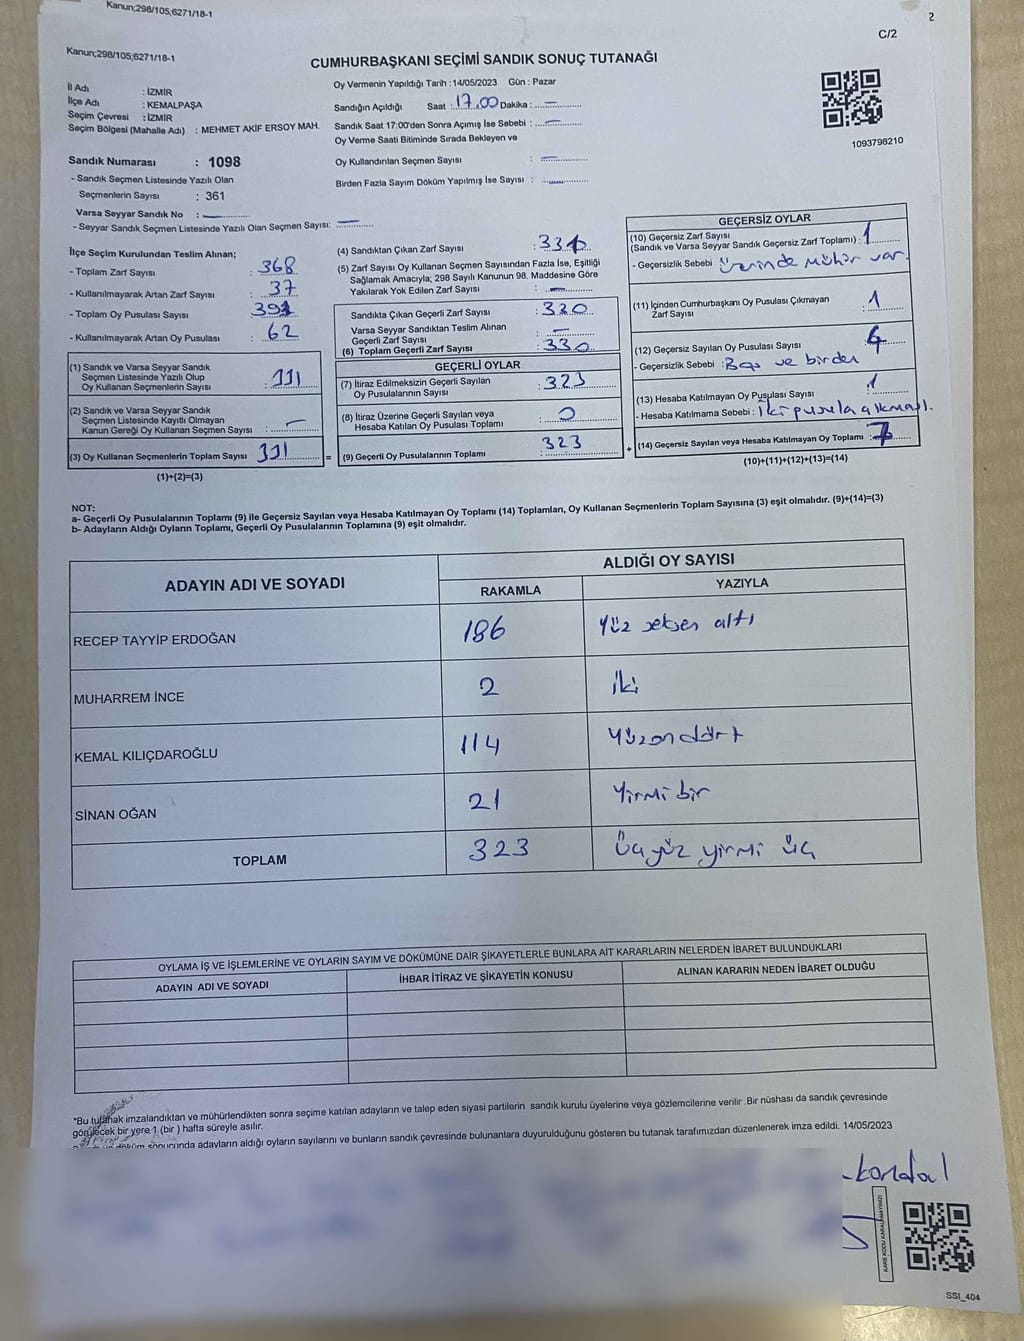 Kanun;298/105;6271/18-1
2
C/2
Kanun;298/105;6271/18-1
CUMHURBAŞKANI SEÇİMİ SANDIK SONUÇ TUTANAĞI
İl Adı : İZMİR
İlçe Adı : KEMALPAŞA
Seçim Çevresi : İZMİR
Seçim Bölgesi (Mahalle Adı) : MEHMET AKİF ERSOY MAH.
Oy Vermenin Yapıldığı Tarih : 14/05/2023 Gün : Pazar
Sandığın Açıldığı Saat : 17.00 Dakika : —
Sandık Saat 17:00'den Sonra Açımış İse Sebebi : —
Oy Verme Saati Bitiminde Sırada Bekleyen ve
Oy Kullandırılan Seçmen Sayısı : —
Birden Fazla Sayım Döküm Yapılmış İse Sayısı : —
1093798210
Sandık Numarası : 1098
- Sandık Seçmen Listesinde Yazılı Olan
Seçmenlerin Sayısı : 361
Varsa Seyyar Sandık No : —
- Seyyar Sandık Seçmen Listesinde Yazılı Olan Seçmen Sayısı: —
İlçe Seçim Kurulundan Teslim Alınan;
- Toplam Zarf Sayısı : 368
- Kullanılmayarak Artan Zarf Sayısı : 37
- Toplam Oy Pusulası Sayısı :
- Kullanılmayarak Artan Oy Pusulası : 62
(1) Sandık ve Varsa Seyyar Sandık
Seçmen Listesinde Yazılı Olup
Oy Kullanan Seçmenlerin Sayısı : 331
(2) Sandık ve Varsa Seyyar Sandık
Seçmen Listesinde Kayıtlı Olmayan
Kanun Gereği Oy Kullanan Seçmen Sayısı : —
(3) Oy Kullanan Seçmenlerin Toplam Sayısı 331
(1)+(2)=(3)
(4) Sandıktan Çıkan Zarf Sayısı :
(5) Zarf Sayısı Oy Kullanan Seçmen Sayısından Fazla İse, Eşitliği
Sağlamak Amacıyla; 298 Sayılı Kanunun 98. Maddesine Göre
Yakılarak Yok Edilen Zarf Sayısı : —
Sandıkta Çıkan Geçerli Zarf Sayısı : 330
Varsa Seyyar Sandıktan Teslim Alınan
Geçerli Zarf Sayısı : —
(6) Toplam Geçerli Zarf Sayısı : 330
GEÇERLİ OYLAR
(7) İtiraz Edilmeksizin Geçerli Sayılan
Oy Pusulasının Sayısı : 323
(8) İtiraz Üzerine Geçerli Sayılan veya
Hesaba Katılan Oy Pusulası Toplamı : 0
= (9) Geçerli Oy Pusulalarının Toplamı : 323
GEÇERSİZ OYLAR
(10) Geçersiz Zarf Sayısı
(Sandık ve Varsa Seyyar Sandık Geçersiz Zarf Toplamı) : 1
- Geçersizlik Sebebi : Üzerinde mühür var.
(11) İçinden Cumhurbaşkanı Oy Pusulası Çıkmayan
Zarf Sayısı : 1
(12) Geçersiz Sayılan Oy Pusulası Sayısı : 4
- Geçersizlik Sebebi : Boş ve birden
(13) Hesaba Katılmayan Oy Pusulası Sayısı : 1
- Hesaba Katılmama Sebebi : İki pusula çıkması.
+ (14) Geçersiz Sayılan veya Hesaba Katılmayan Oy Toplamı : 7
(10)+(11)+(12)+(13)=(14)
NOT:
a- Geçerli Oy Pusulalarının Toplamı (9) ile Geçersiz Sayılan veya Hesaba Katılmayan Oy Toplamı (14) Toplamları, Oy Kullanan Seçmenlerin Toplam Sayısına (3) eşit olmalıdır. (9)+(14)=(3)
b- Adayların Aldığı Oyların Toplamı, Geçerli Oy Pusulalarının Toplamına (9) eşit olmalıdır.
ADAYIN ADI VE SOYADI
ALDIĞI OY SAYISI
RAKAMLA
YAZIYLA
RECEP TAYYİP ERDOĞAN 186 Yüz seksen altı
MUHARREM İNCE 2 iki
KEMAL KILIÇDAROĞLU 114 Yüzondört
SİNAN OĞAN 21 Yirmi bir
TOPLAM 323 Üçyüz yirmi üç
OYLAMA İŞ VE İŞLEMLERİNE VE OYLARIN SAYIM VE DÖKÜMÜNE DAİR ŞİKAYETLERLE BUNLARA AİT KARARLARIN NELERDEN İBARET BULUNDUKLARI
ADAYIN ADI VE SOYADI
İHBAR İTİRAZ VE ŞİKAYETİN KONUSU
ALINAN KARARIN NEDEN İBARET OLDUĞU
*Bu tutanak imzalandıktan ve mühürlendikten sonra seçime katılan adayların ve talep eden siyasi partilerin sandık kurulu üyelerine veya gözlemcilerine verilir .Bir nüshası da sandık çevresinde
görülecek bir yere 1 (bir ) hafta süreyle asılır.
döküm sonucunda adayların aldığı oyların sayılarını ve bunların sandık çevresinde bulunanlara duyurulduğunu gösteren bu tutanak tarafımızdan düzenlenerek imza edildi. 14/05/2023
KARE KODU KARALAMAYINIZ!
SSI_404